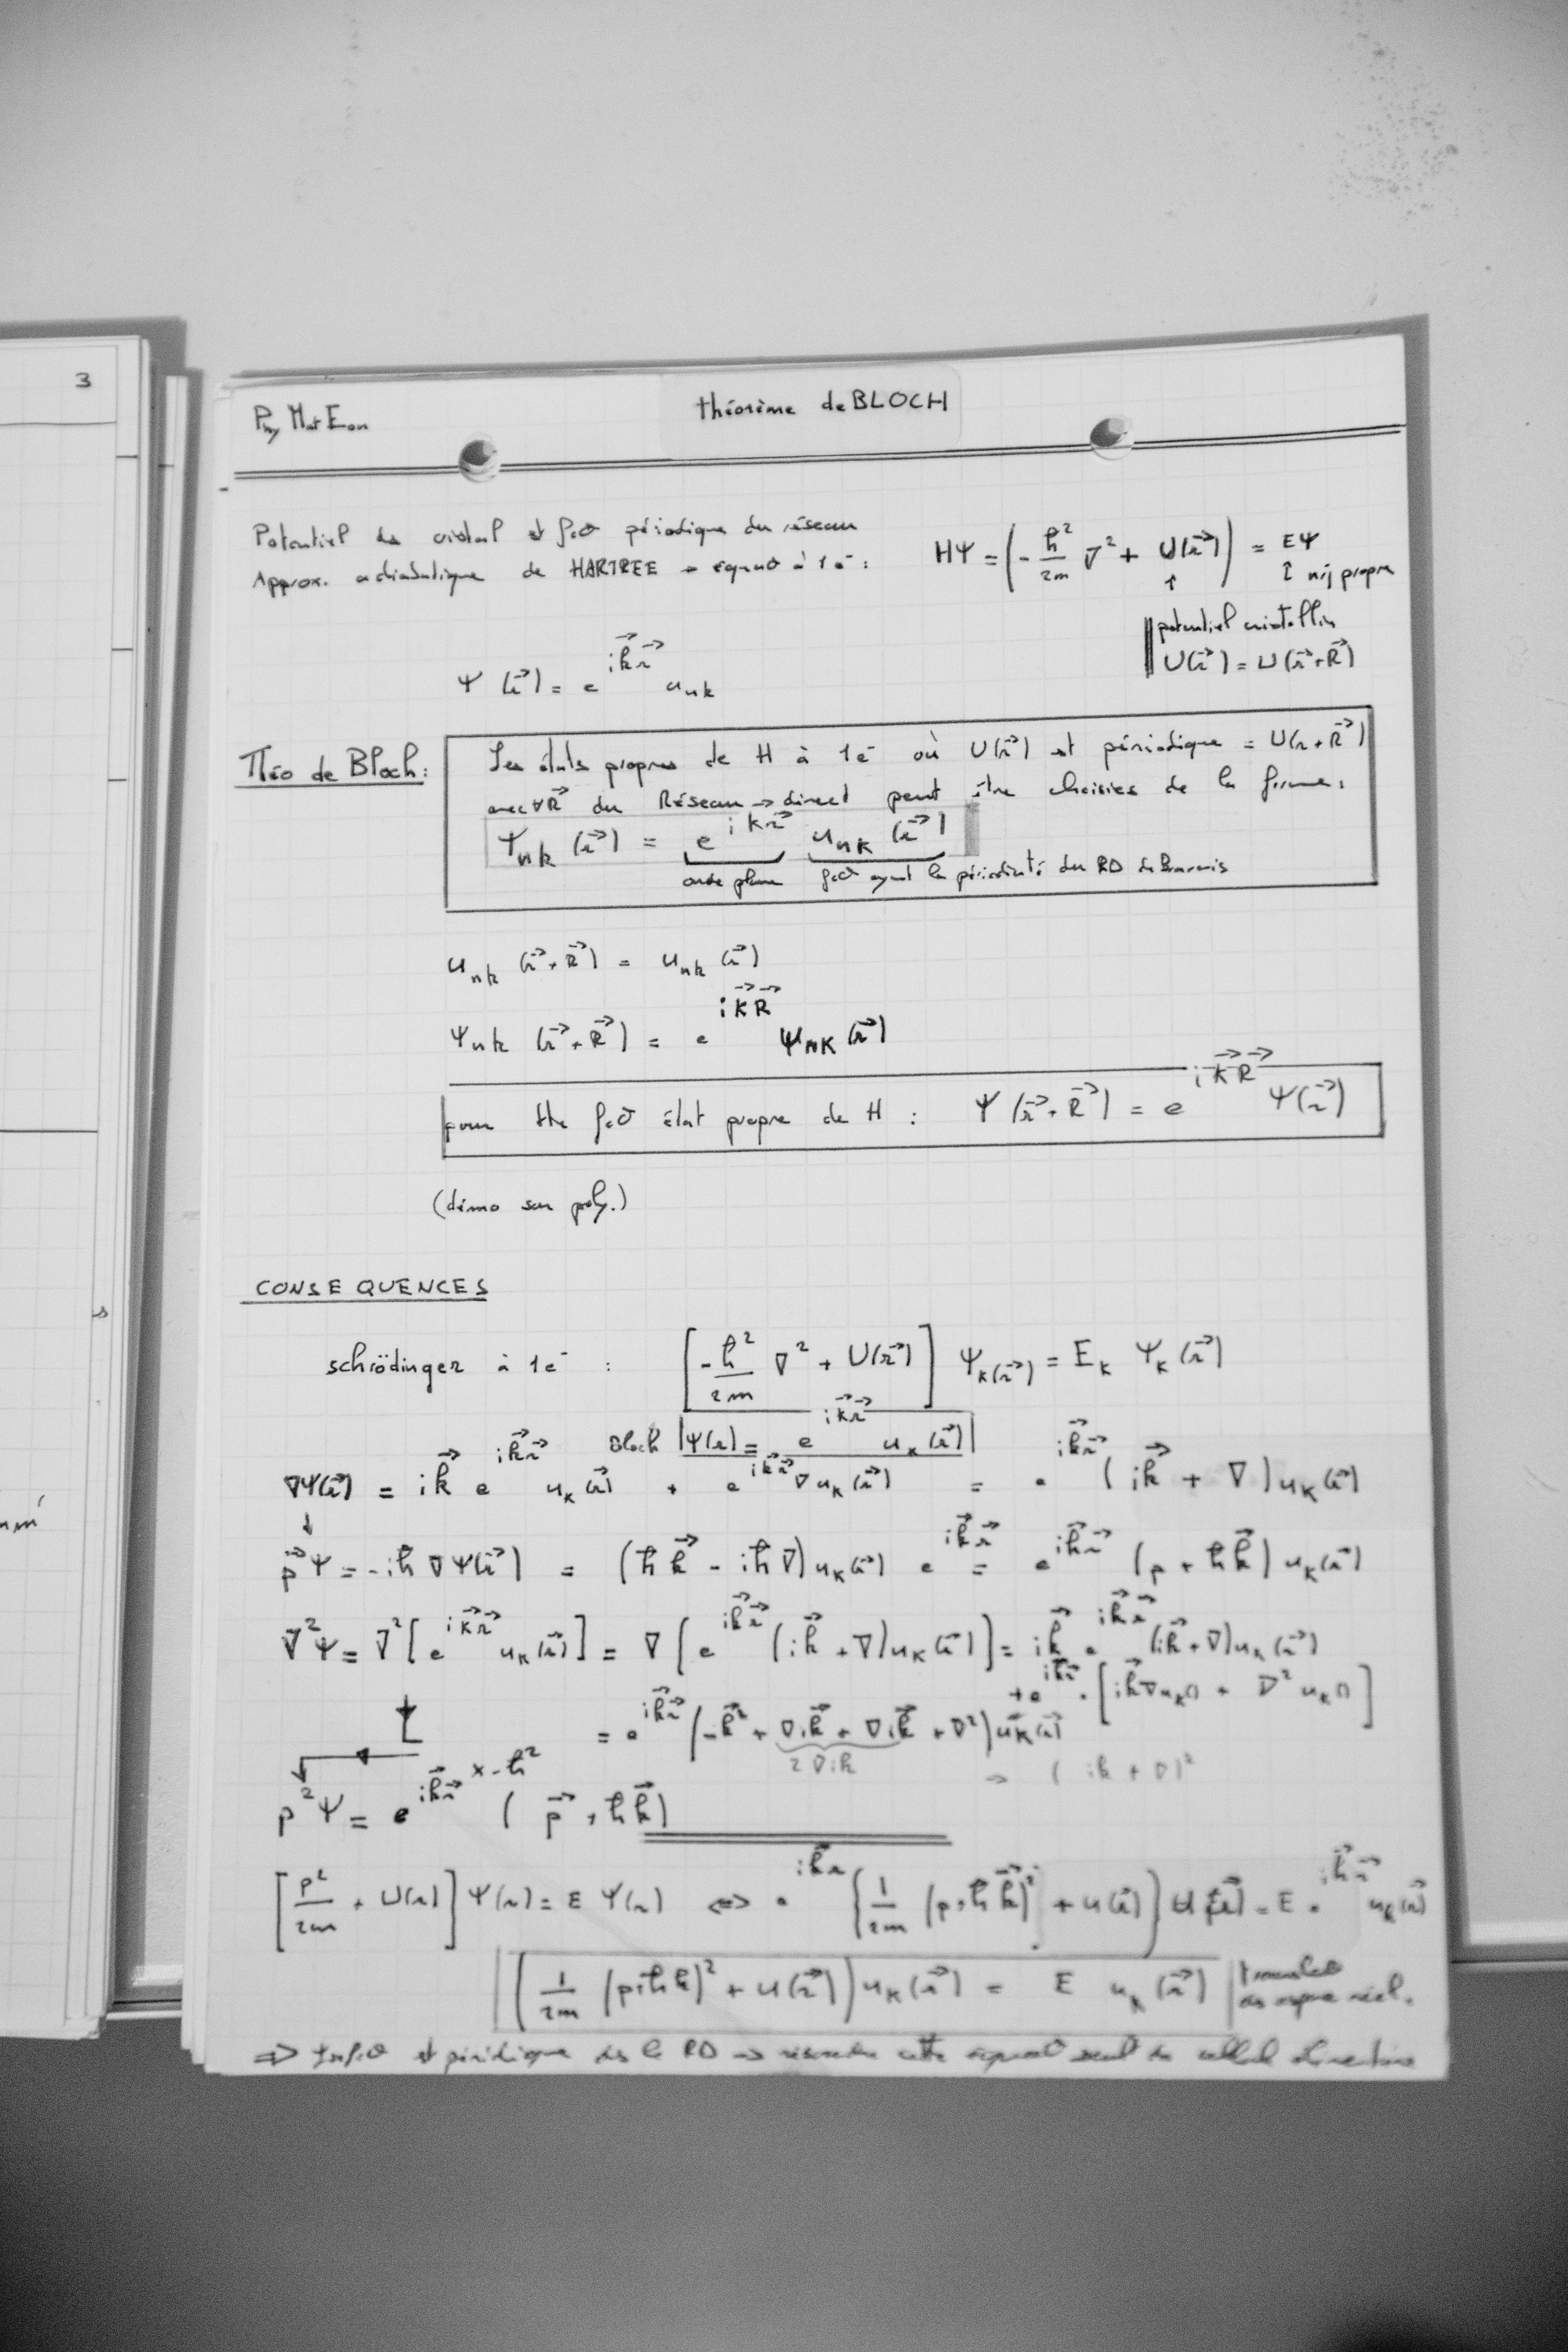 3
Phy Mat Eon
théorème de BLOCH
Potentiel ds cristal est fct° périodique du réseau
Approx. adiabatique de HARTREE → équat° à 1 e⁻ :
HΨ = (-ħ²/2m ∇² + U(r⃗)) = EΨ
↑ ↑ niv propre
potentiel cristallin
U(r⃗) = U(r⃗+R⃗)
Ψ(r⃗) = e^{ik⃗r⃗} u_nk
Théo de Bloch :
Les états propres de H à 1e⁻ où U(r⃗) est périodique = U(r+R⃗)
avec ∀R⃗ du Réseau → direct peut être choisies de la forme :
Ψ_nk(r⃗) = e^{ikr⃗} u_nk(r⃗)
onde plane fct° ayant la périodicité du RD de Bravais
u_nk(r⃗+R⃗) = u_nk(r⃗)
Ψ_nk(r⃗+R⃗) = e^{ik⃗R⃗} Ψ_nk(r⃗)
pour tte fct° état propre de H : Ψ(r⃗+R⃗) = e^{ik⃗R⃗} Ψ(r⃗)
(démo sur poly.)
CONSEQUENCES
schrödinger à 1e⁻ : [-ħ²/2m ∇² + U(r⃗)] Ψ_k(r⃗) = E_k Ψ_k(r⃗)
Bloch Ψ(r) = e^{ik⃗r⃗} u_k(r⃗)
∇Ψ(r⃗) = ik⃗ e^{ik⃗r⃗} u_k(r⃗) + e^{ik⃗r⃗} ∇u_k(r⃗) = e^{ik⃗r⃗} (ik⃗ + ∇) u_k(r⃗)
↓
p⃗Ψ = -iħ ∇Ψ(r⃗) = (ħk⃗ - iħ∇) u_k(r⃗) e^{ik⃗r⃗} = e^{ik⃗r⃗} (p + ħk⃗) u_k(r⃗)
∇²Ψ = ∇²[e^{ik⃗r⃗} u_k(r⃗)] = ∇[e^{ik⃗r⃗} (ik⃗ + ∇) u_k(r⃗)] = ik⃗ e^{ik⃗r⃗} (ik⃗+∇) u_k(r⃗)
+ e^{ik⃗r⃗} · [ik⃗∇u_k() + ∇²u_k()]
= e^{ik⃗r⃗} (-k⃗² + ∇ik⃗ + ∇ik⃗ + ∇²) u_k(r⃗)
2∇ik → (ik + ∇)²
x -ħ²
p²Ψ = e^{ik⃗r⃗} (p⃗ + ħk⃗)
[p²/2m + U(r)] Ψ(r) = E Ψ(r) ⇔ e^{ik⃗r} (1/2m (p+ħk⃗)² + u(r⃗)) u_k(r⃗) = E e^{ik⃗r⃗} u_k(r⃗)
(1/2m (p+ħk)² + u(r⃗)) u_k(r⃗) = E u_k(r⃗)
⇒ est périodique ds le RD → résoudre cette équat° seul ds cellule élémentaire